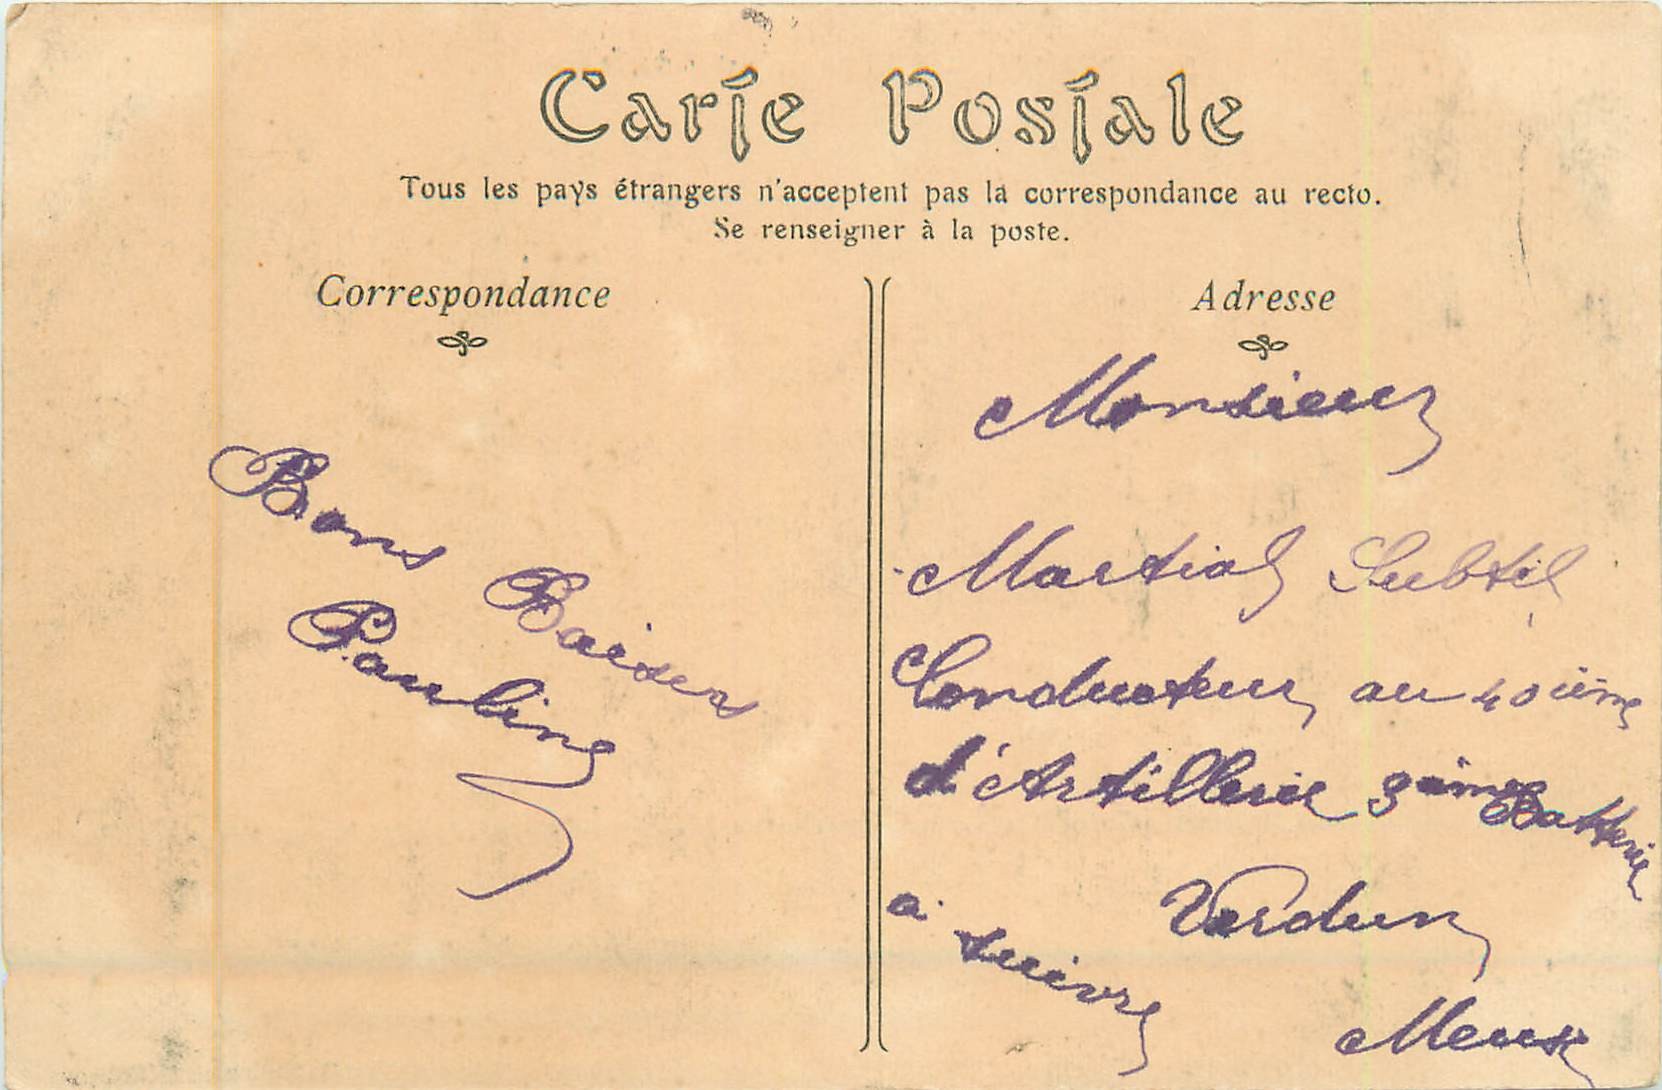 Carte Postale
Tous les pays étrangers n'acceptent pas la correspondance au recto.
Se renseigner à la poste.
Correspondance
Bons Baisers
Pauline
Adresse
Monsieur
Martial Subtil
Conducteur au 40ième
d'Artillerie 3ième Batterie
Verdun
à suivre
Meuse